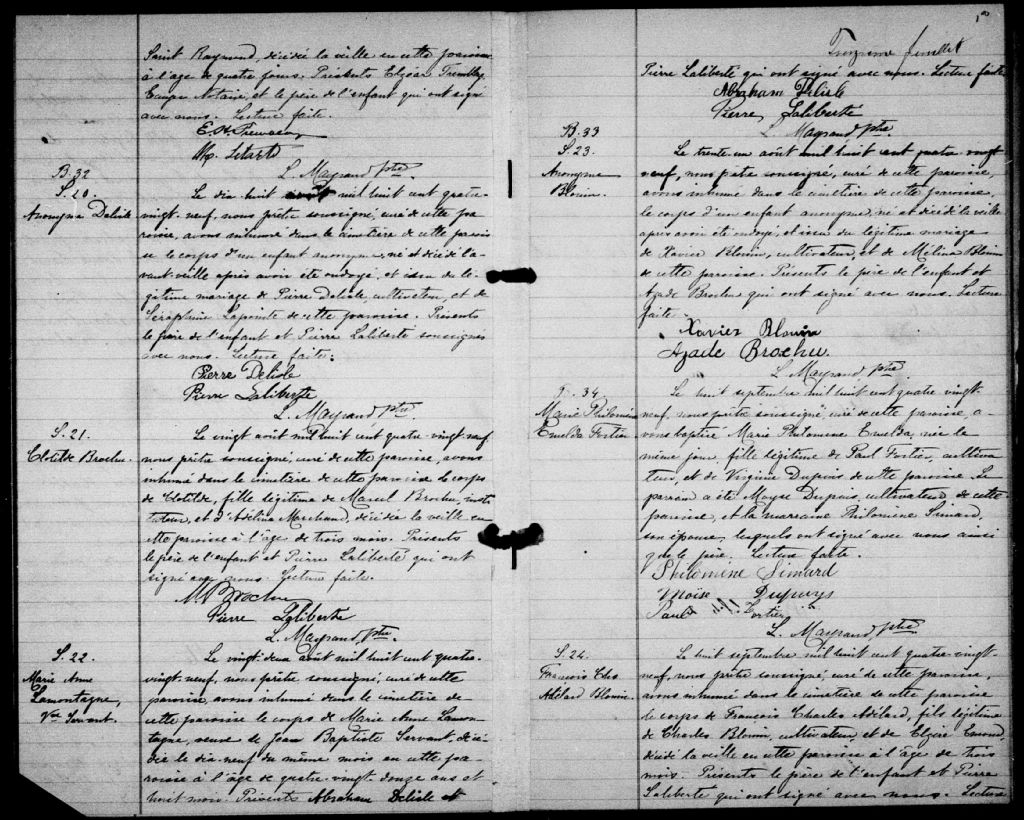 Saint Raymond, décédée la veille en cette paroisse
à l'age de quatre jours. Présents Elzéar Tremblay
Ecuyer Notaire, et le père de l'enfant qui ont signé
avec nous. Lecture faite.
L. Mayrand ptre.
B. 32
S. 20
Anonyme Delisle
Le dix huit août mil huit cent quatre
vingt-neuf, nous prêtre soussigné, curé de cette pa
roisse, avons inhumé dans le cimetière de cette parois
se le corps d'un enfant anonyme, né et décédé l'a
vant-veille après avoir été ondoyé, et issu du lé
gitime mariage de Pierre Delisle, cultivateur, et de
Séraphine Lapointe de cette paroisse. Présents
le père de l'enfant et Pierre Laliberté soussignés
avec nous. Lecture faite.
Pierre Delisle
Pierre Laliberte
L. Mayrand, ptre
S. 21.
Clotilde Brochu.
Le vingt août mil huit cent quatre vingt-neuf
nous prêtre soussigné, curé de cette paroisse, avons
inhumé dans le cimetière de cette paroisse le corps
de Clotilde, fille légitime de Marcel Brochu, insti
tuteur, et d'Adélina Marchand, décédée la veille en
cette paroisse à l'âge de trois mois. Présents
le père de l'enfant et Pierre Laliberté qui ont
signé avec nous. Lecture faite.
M Brochu
Pierre Laliberte
L. Mayrand, ptre.
S. 22.
Marie Anne
Lamontagne,
Vve Servant.
Le vingt-deux août mil huit cent quatre-
vingt-neuf, nous prêtre soussigné, curé de cette
paroisse, avons inhumé dans le cimetière de
cette paroisse le corps de Marie Anne Lamon-
tagne, veuve de Jean Baptiste Servant, décé-
dée le dix-neuf du même mois en cette pa-
roisse à l'âge de quatre-vingt-douze ans et
huit mois. Présents Abraham Delisle et
Treizième feuillet
Pierre Laliberté qui ont signé avec nous. Lecture faite
Abraham Delisle
Pierre Laliberte
L. Mayrand ptre.
B. 33
S. 23.
Anonyme
Blouin.
Le trente un août mil huit cent quatre vingt
neuf, nous prêtre soussigné, curé de cette paroisse,
avons inhumé dans le cimetière de cette paroisse
le corps d'un enfant anonyme, né et décédé la veille
après avoir été ondoyé, et issu du légitime mariage
de Xavier Blouin, cultivateur, et de Mélina Blouin
de cette paroisse. Présents le père de l'enfant et
Azade Brochu qui ont signé avec nous. Lecture
faite.
Xavier Blouin
Azade Brochu.
L. Mayrand ptre.
34
Marie Philomène
Emelda Fortier
Le huit septembre mil huit cent quatre vingt-
neuf, nous prêtre soussigné, curé de cette paroisse, a-
vons baptisé Marie Philomène Emelda, née le
même jour, fille légitime de Paul Fortier, cultiva
teur, et de Virginie Dupuis de cette paroisse. Le
parrain a été Moyse Dupuis, cultivateur de cette
paroisse, et la marraine Philomène Simard,
son épouse, lesquels ont signé avec nous ainsi
que le père. Lecture faite.
Philomène Simard
Moise Dupuys
Paul Fortier
L. Mayrand, ptre
S. 24.
François Chs
Adélard Blouin.
Le huit septembre mil huit cent quatre vingt-
neuf, nous prêtre soussigné, curé de cette paroisse,
avons inhumé dans le cimetière de cette paroisse
le corps de François Charles Adélard, fils légitime
de Charles Blouin, cultivateur, et de Elzire Emond,
décédé la veille en cette paroisse à l'âge de trois
mois. Présents le père de l'enfant et Pierre
Laliberté qui ont signé avec nous. Lecture